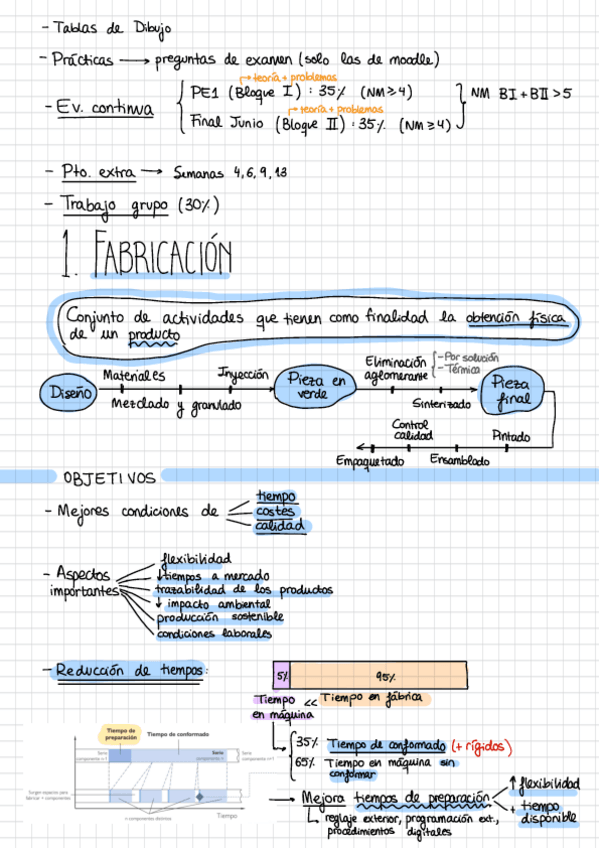 - Tablas de Dibujo
- Prácticas → preguntas de examen (solo las de moodle)
→ teoría + problemas
- Ev. continua
PE1 (Bloque I) : 35% (NM≥4)
NM BI + BII > 5
→ teoría + problemas
Final Junio (Bloque II) : 35% (NM≥4)
- Pto. extra → Semanas 4,6,9,13
- Trabajo grupo (30%)
1. FABRICACIÓN
Conjunto de actividades que tienen como finalidad la obtención física
de un producto
Diseño
Materiales
Mezclado y granulado
Inyección
Pieza en
verde
Eliminación
aglomerante
- Por solución
- Térmica
Sinterizado
Pieza
final
Pintado
Control
calidad
Ensamblado
Empaquetado
OBJETIVOS
- Mejores condiciones de
tiempo
costes
calidad
- Aspectos
importantes
flexibilidad
↓ tiempos a mercado
trazabilidad de los productos
↓ impacto ambiental
producción sostenible
condiciones laborales
- Reducción de tiempos:
5%
95%
Tiempo
en máquina
<< Tiempo en fábrica
35% Tiempo de conformado (+ rígidos)
65% Tiempo en máquina sin
conformar
Tiempo de
preparación
Tiempo de conformado
Serie
componente n-1
Serie
componente n
Serie
componente n+1
Surgen espacios para
fabricar + componentes
n componentes distintos
Tiempo
→ Mejora tiempos de preparación
↑ flexibilidad
+ tiempo
disponible
reglaje exterior, programación ext.,
procedimientos digitales